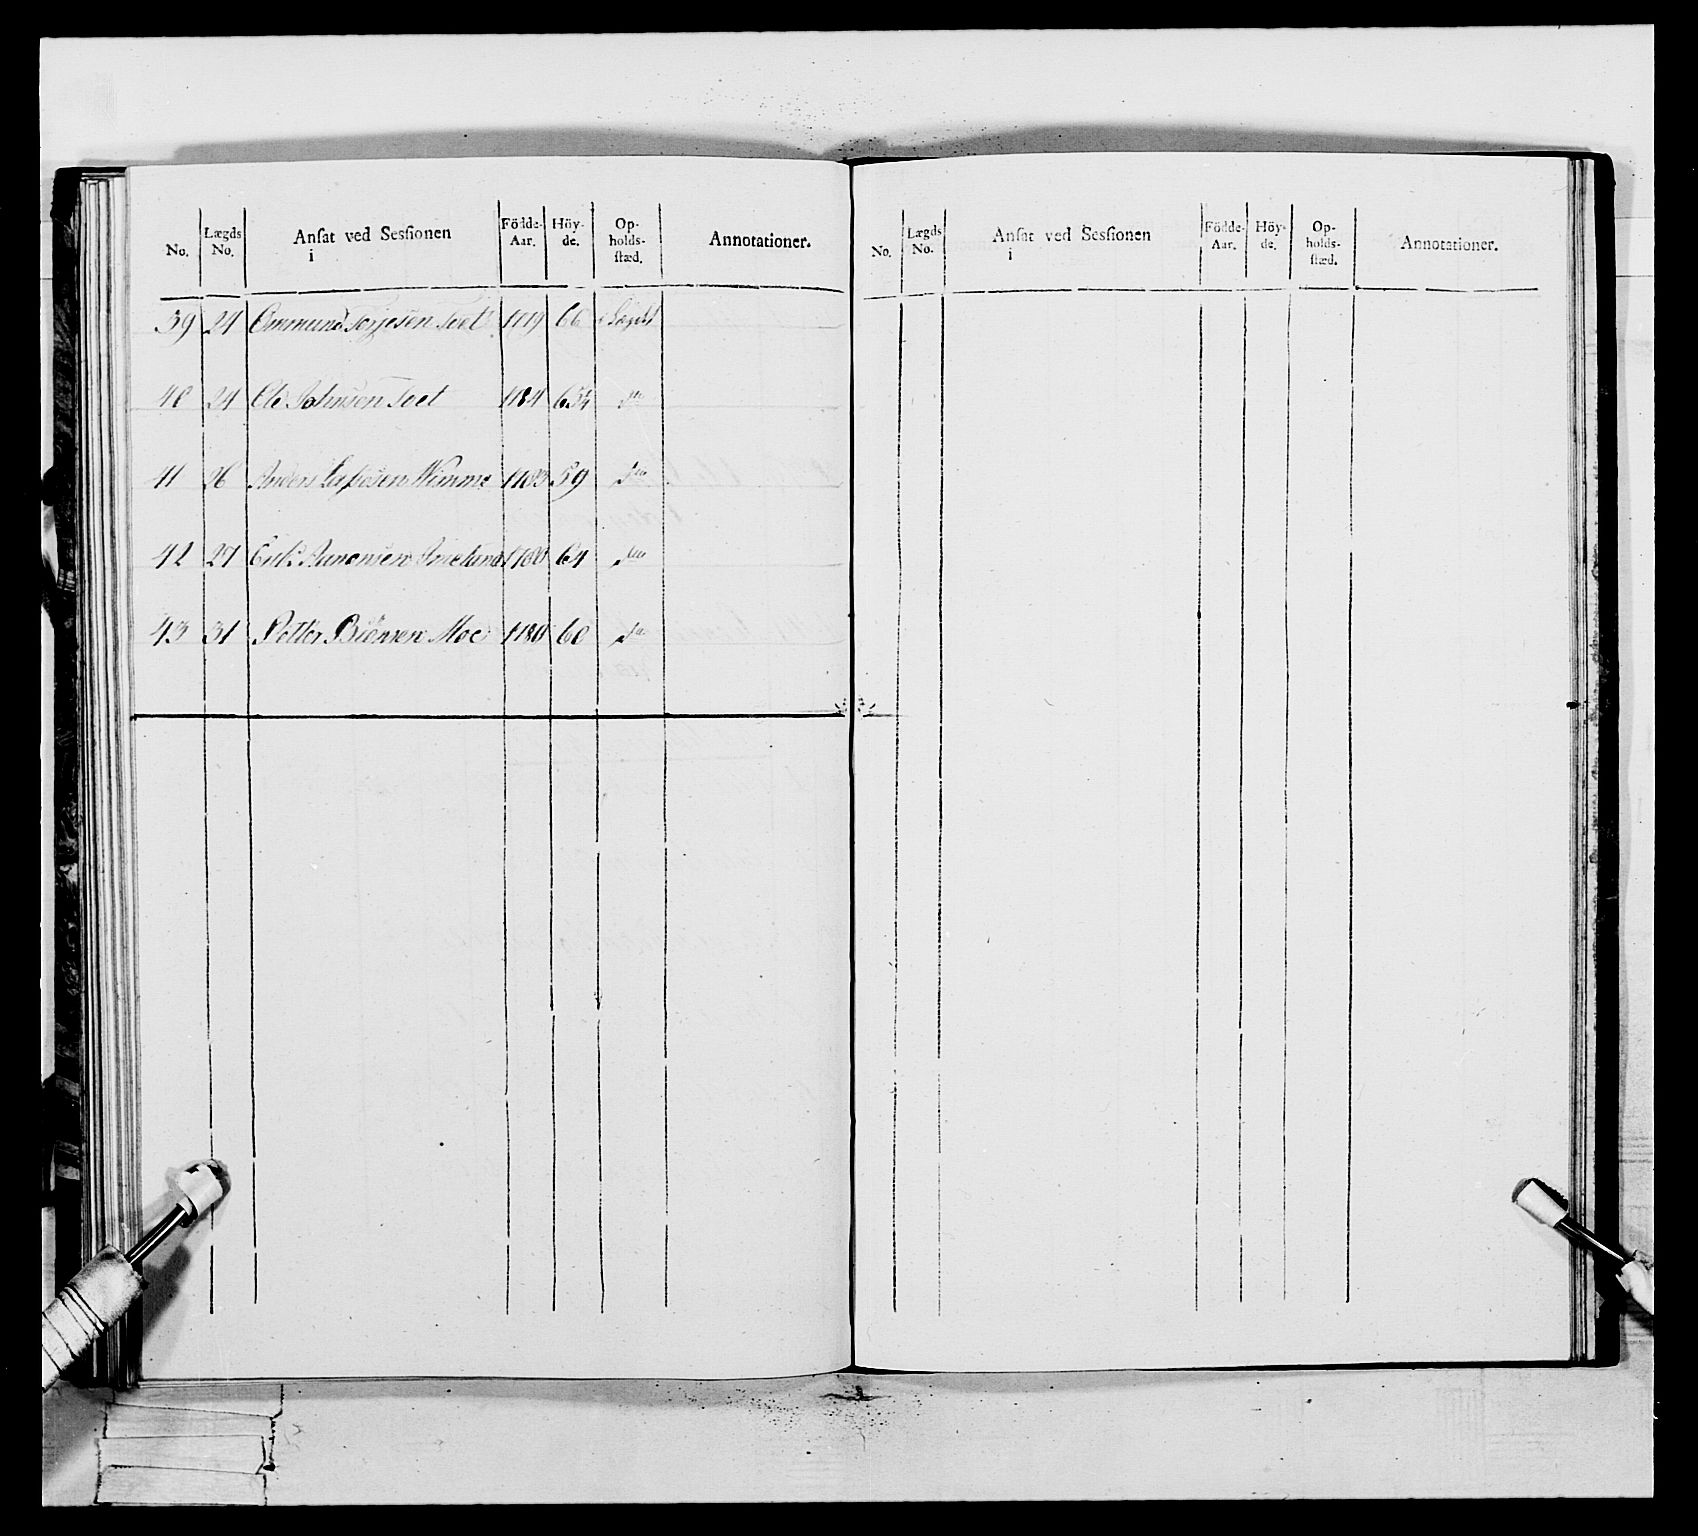 No. Lægds No. Ansat ved Sessionen i Födde-Aar. Höy-de. Op-holds-stæd. Annotationer.
39 24 Ommund Torjesen Tvet 1779 66 i Lægdet
40 24 Ole Johnsen Tvet 1784 65¾ do
41 26 Anders 1783 59 do
42 27 Erik 1780 64 do
43 31 Petter Moe 1780 60 do
No. Lægds No. Ansat ved Sessionen i Födde-Aar. Höy-de. Op-holds-stæd. Annotationer.